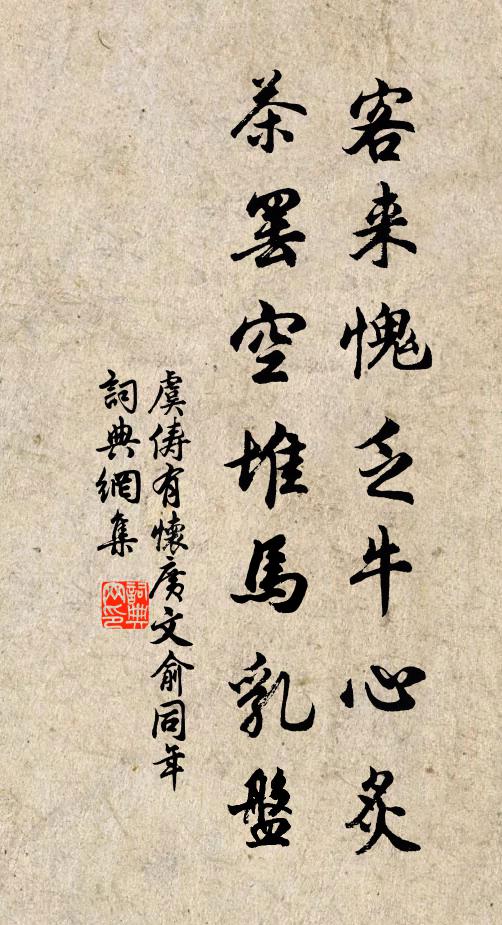 客来愧乏牛心炙
茶罢空堆馬乳盤
虞俦有懷廣文俞同年
詞典網集
詞典网印